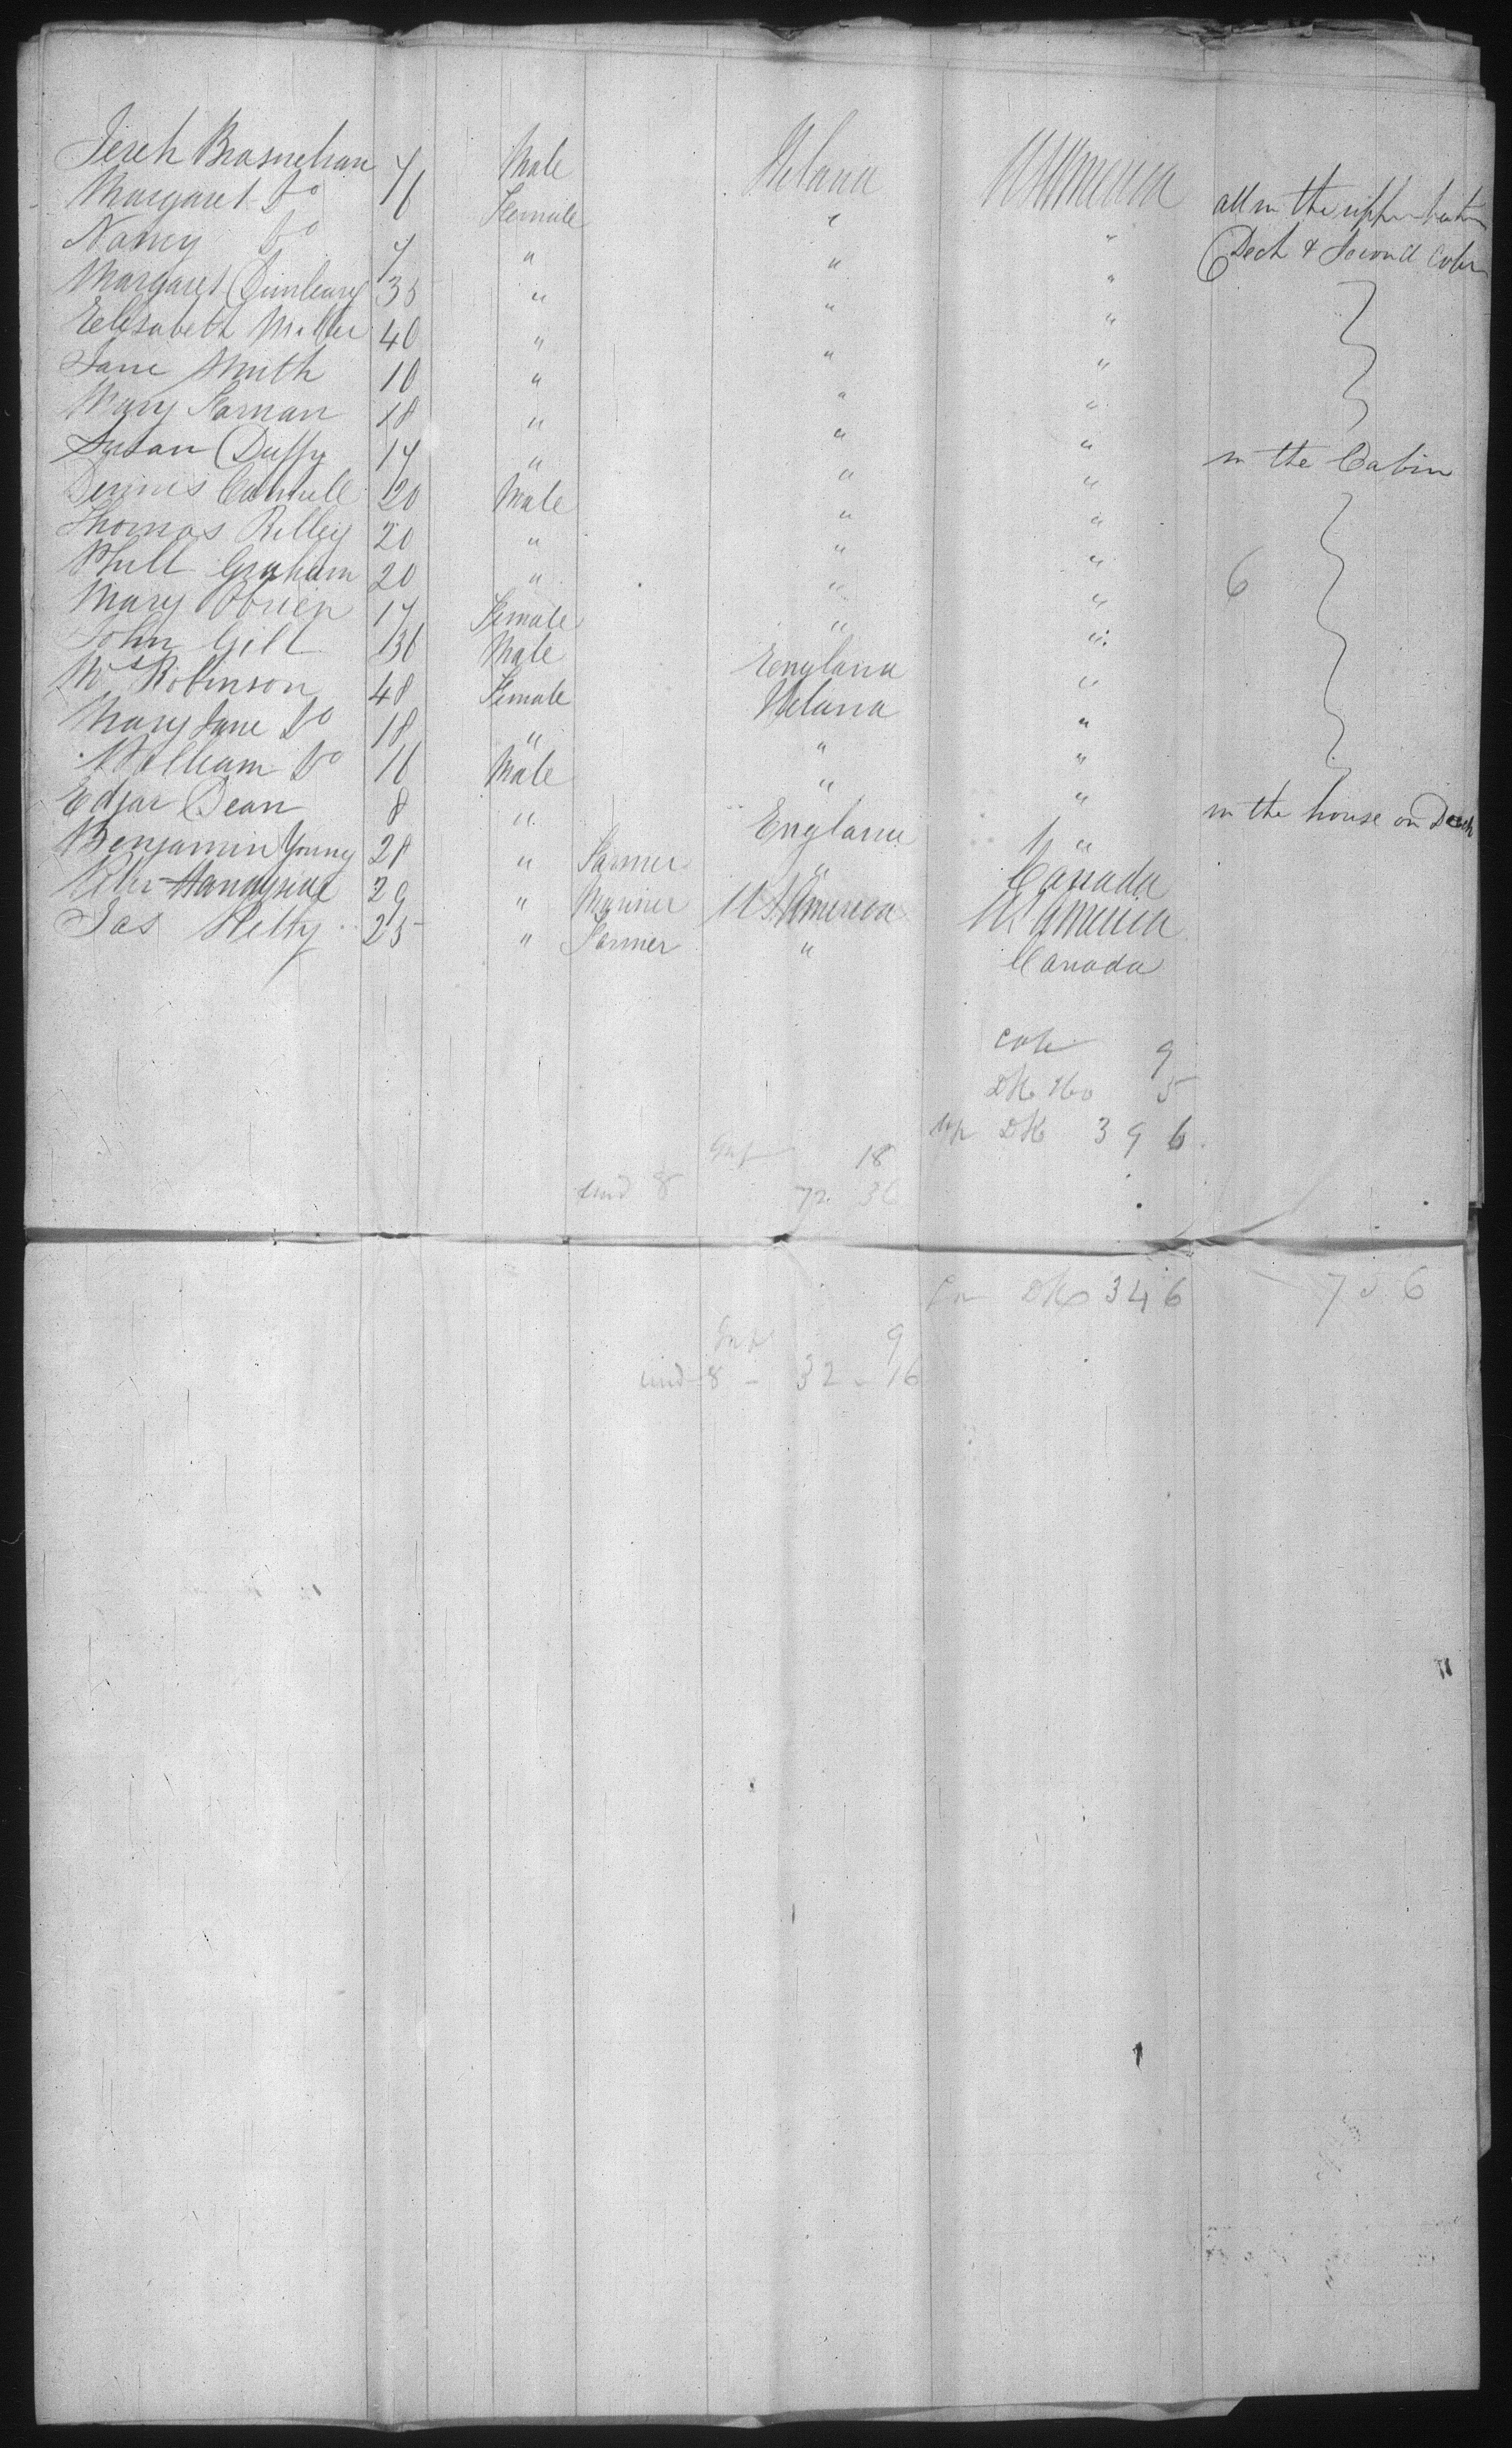 Jereh Brasnehan 7 Male Ireland U S America
Margaret Do 6 Female " " all in the upper between
Nancy Do 7 " " " Deck & Second Cabin
Margaret 35 " " "
Elizabeth Miller 40 " " "
Jane Smith 10 " " "
Mary Farnan 18 " " "
Susan Duffy 17 " " " in the Cabin
Dennis 20 Male " "
Thomas Rilley 20 " " "
Phill Graham 20 " " " 6
Mary Obrien 17 Female " "
John Gill 36 Male England "
Mrs Robinson 48 Female Ireland "
Mary Jane Do 18 " " "
William Do 16 Male " "
Edgar Dean 8 " England " in the house on Deck
Benjamin Young 28 " Farmer " Canada
Peter Handyside 29 " Mariner U S America U S America
Jas Petty 25 " Farmer " Canada
Cab 9
Dk Ho 5
up Dk 396
Inf 18
und 8 72 36
Lr Dk 346 756
Inf 9
und 8 - 32 - 16